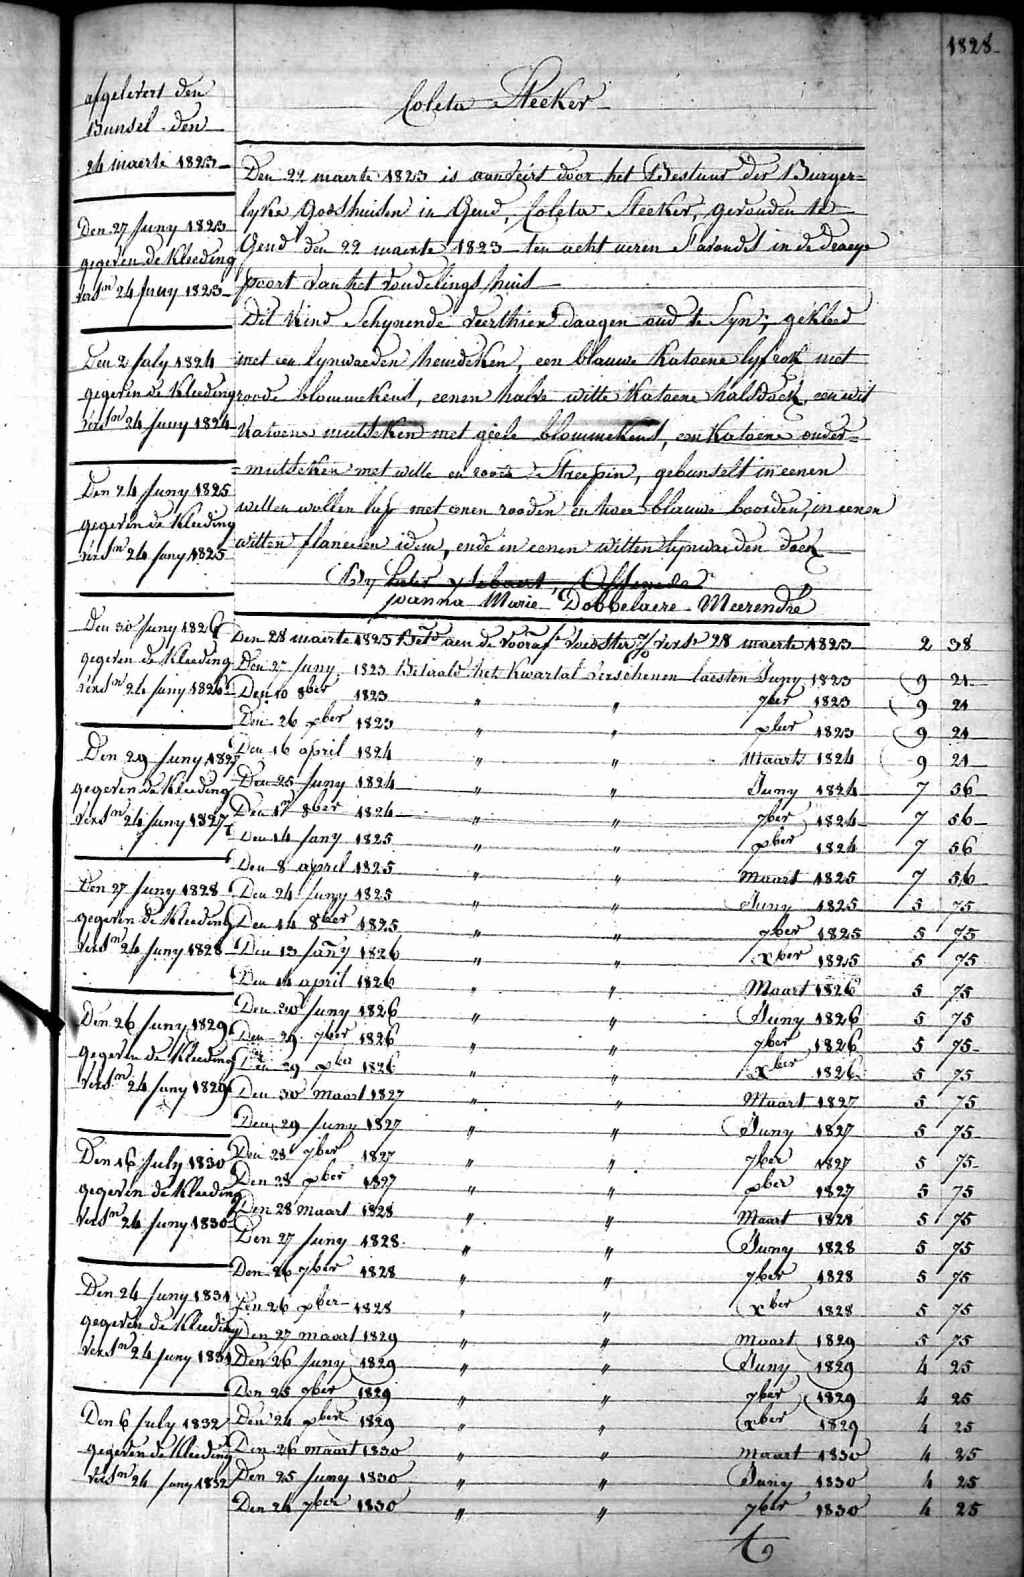 1828
Coleta Steeker
afgelevert den
Bunsel den
24 maerte 1823
Den 27 Juny 1823
gegeven de Kleeding
versn 24 Juny 1823
Den 2 July 1824
gegeven de Kleeding
versn 24 Juny 1824
Den 24 Juny 1825
gegeven de Kleeding
versn 24 Juny 1825
Den 30 Juny 1826
gegeven de Kleeding
versn 24 Juny 1826
Den 29 Juny 1827
gegeven de Kleeding
versn 24 Juny 1827
Den 27 Juny 1828
gegeven de Kleeding
versn 24 Juny 1828
Den 26 Juny 1829
gegeven de Kleeding
versn 24 Juny 1829
Den 16 July 1830
gegeven de Kleeding
versn 24 Juny 1830
Den 24 Juny 1831
gegeven de Kleeding
versn 24 Juny 1831
Den 6 July 1832
gegeven de Kleeding
versn 24 Juny 1832
Den 22 maerte 1823 is aenveirt door het Bestuur der Burger=
lyke Godshuisen in Gend, Coleta Steeker, gevonden te
Gend den 22 maerte 1823 ten acht ueren s'avonds in de draeye
poort van het vondelings huis
Dit Kind Schynende veerthien daagen oud te Syn; gekleed
met een lynwaeden hemdeken, een blauwe Katoene lyfrok met
roode blommekens, eenen halve witte Katoene halsdoek, een wit
Katoene mutseken met geele blommekens, een Katoene onder=
=mutseken met witte en roode Streepen, gebunselt in eenen
witten wollen lap met eenen rooden en twee blauwe boorden, in eenen
witten flaneelen idem, ende in eenen witten lynwaeden doek
By
Joanna Marie Dobbelaere Meerendré
Den 28 maerte 1823 Betd aen de vooraf voedster verst 28 maerte 1823 2 38
Den 27 Juny 1823 Betaald het Kwartal verschenen laesten Juny 1823 9 21
Den 10 8ber 1823 " " 7ber 1823 9 21
Den 26 xber 1823 " " xber 1823 9 21
Den 16 april 1824 " " Maart 1824 9 21
Den 25 Juny 1824 " " Juny 1824 7 56
Den 17 8ber 1824 " " 7ber 1824 7 56
Den 14 Jany 1825 " " xber 1824 7 56
Den 8 april 1825 " " Maart 1825 7 56
Den 24 Juny 1825 " " Juny 1825 5 75
Den 14 8ber 1825 " " 7ber 1825 5 75
Den 13 Jany 1826 " " xber 1825 5 75
Den 14 april 1826 " " Maart 1826 5 75
Den 30 Juny 1826 " " Juny 1826 5 75
Den 29 7ber 1826 " " 7ber 1826 5 75
Den 29 xber 1826 " " xber 1826 5 75
Den 30 maart 1827 " " Maart 1827 5 75
Den 29 Juny 1827 " " Juny 1827 5 75
Den 28 7ber 1827 " " 7ber 1827 5 75
Den 28 xber 1827 " " xber 1827 5 75
Den 28 maart 1828 " " Maart 1828 5 75
Den 27 Juny 1828 " " Juny 1828 5 75
Den 26 7ber 1828 " " 7ber 1828 5 75
Den 26 xber 1828 " " xber 1828 5 75
Den 27 maart 1829 " " maart 1829 5 75
Den 26 Juny 1829 " " Juny 1829 4 25
Den 25 7ber 1829 " " 7ber 1829 4 25
Den 24 xber 1829 " " xber 1829 4 25
Den 26 maart 1830 " " maart 1830 4 25
Den 25 Juny 1830 " " Juny 1830 4 25
Den 24 7ber 1830 " " 7ber 1830 4 25